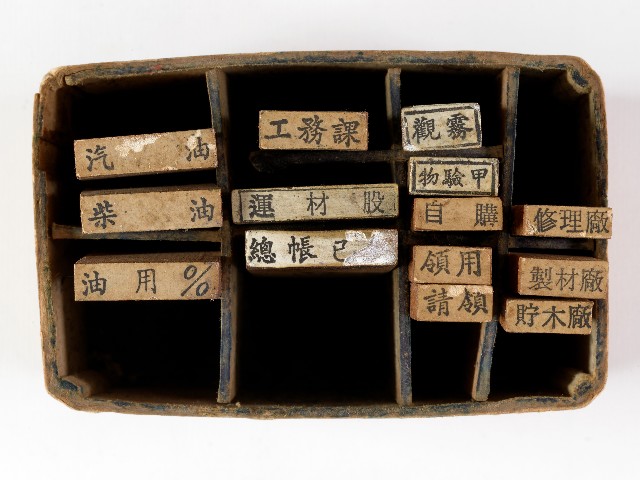 汽油
柴油
油用%
工務課
運材股
總帳已
觀霧
物驗甲
自購
領用
請領
修理廠
製材廠
貯木廠